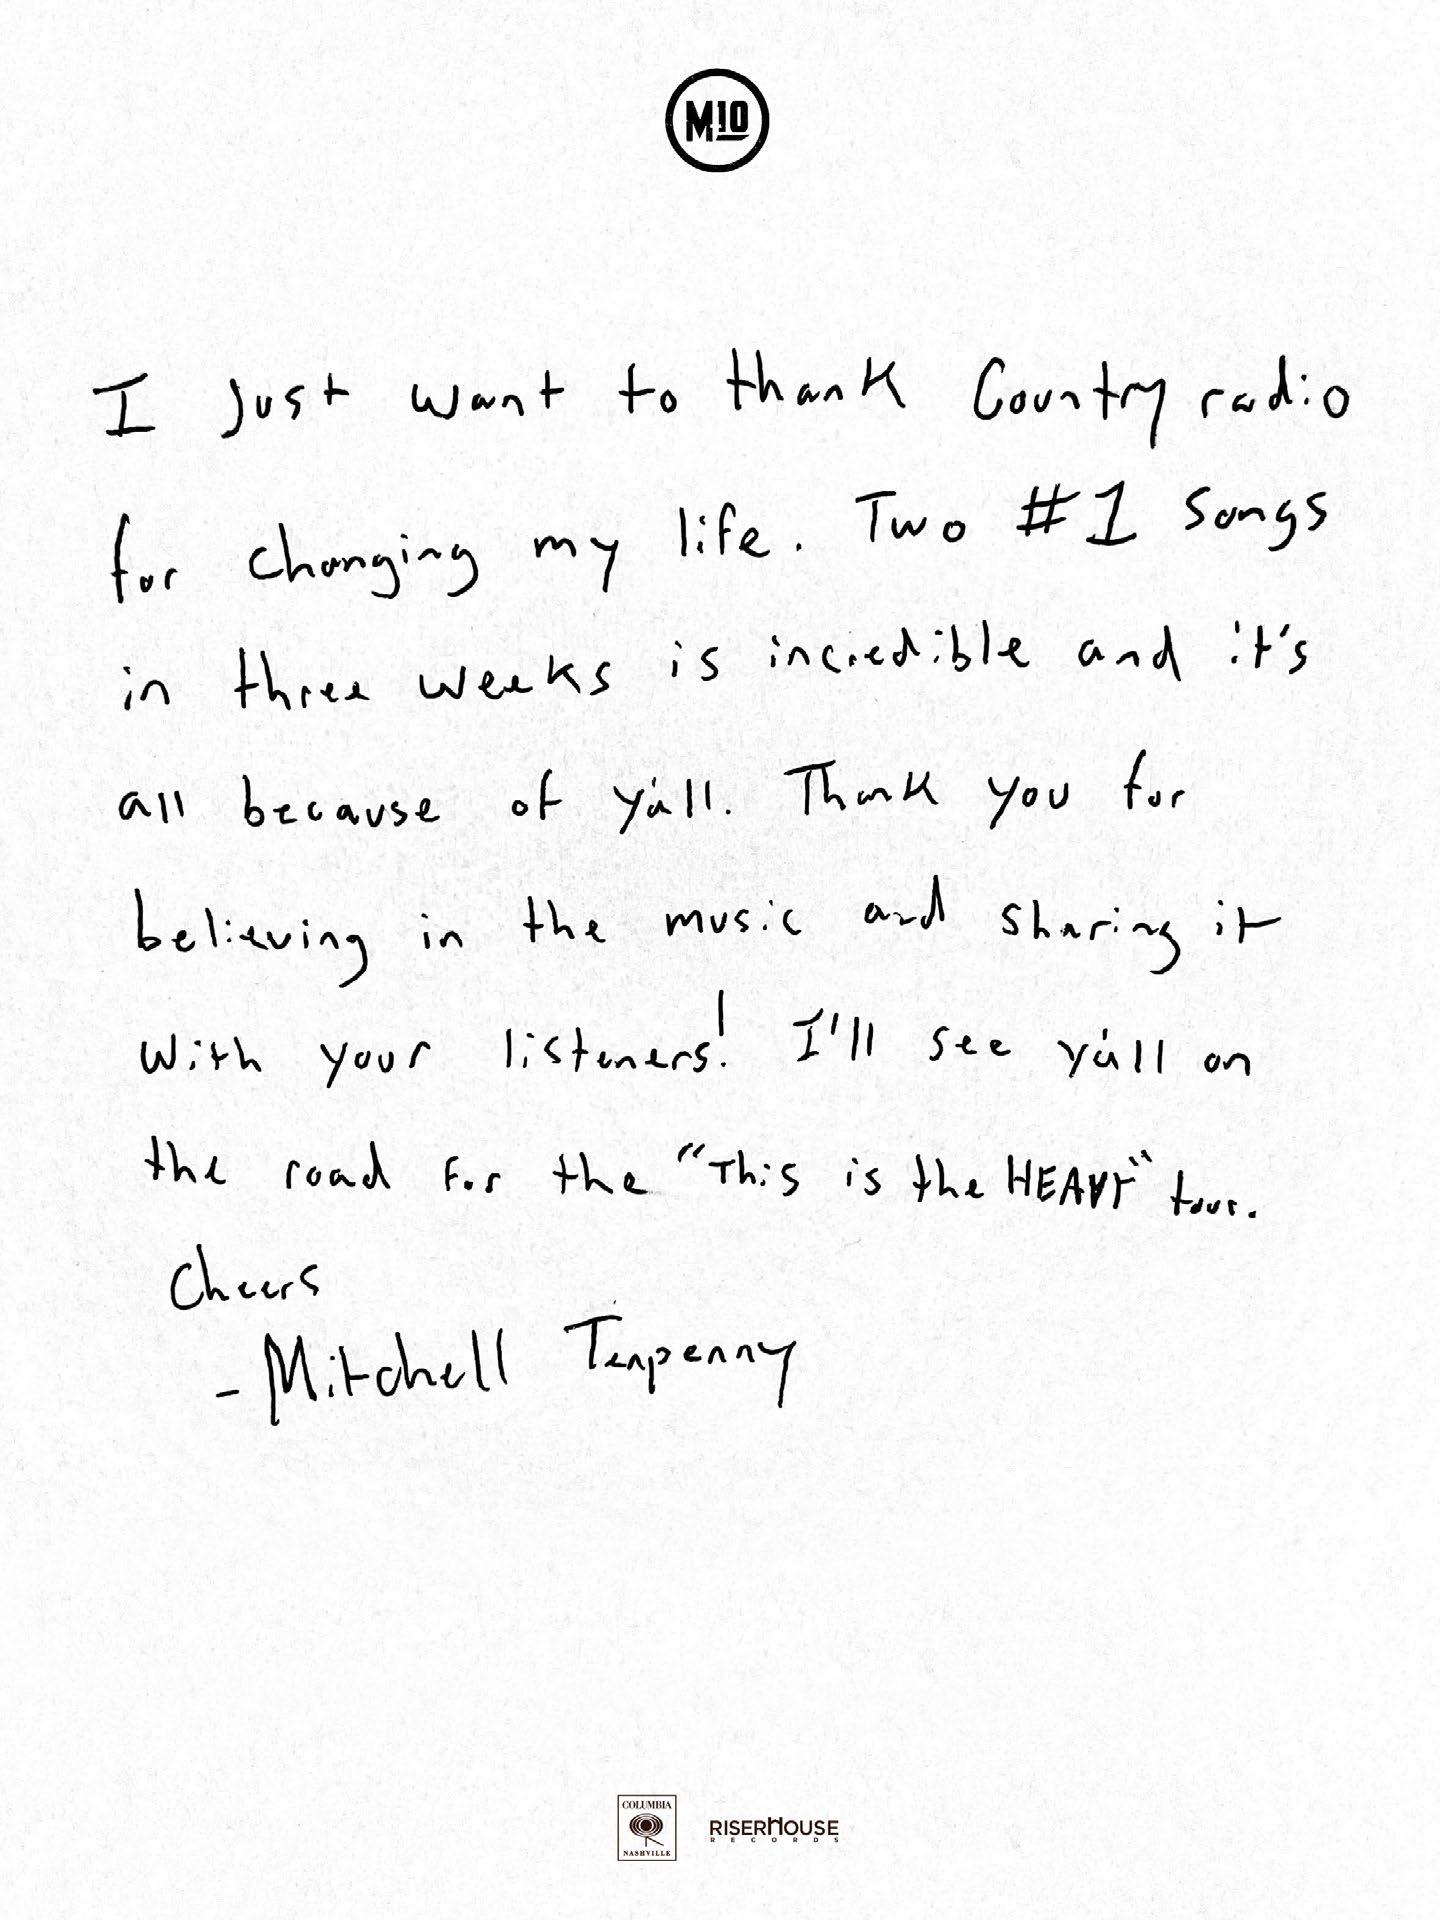 M10
I just want to thank Country radio
for changing my life. Two #1 songs
in three weeks is incredible and it's
all because of y'all. Thank you for
believing in the music and sharing it
with your listeners! I'll see y'all on
the road for the "This is the HEAVY" tour.
Cheers
- Mitchell Tenpenny
COLUMBIA
NASHVILLE
RISERHOUSE
RECORDS